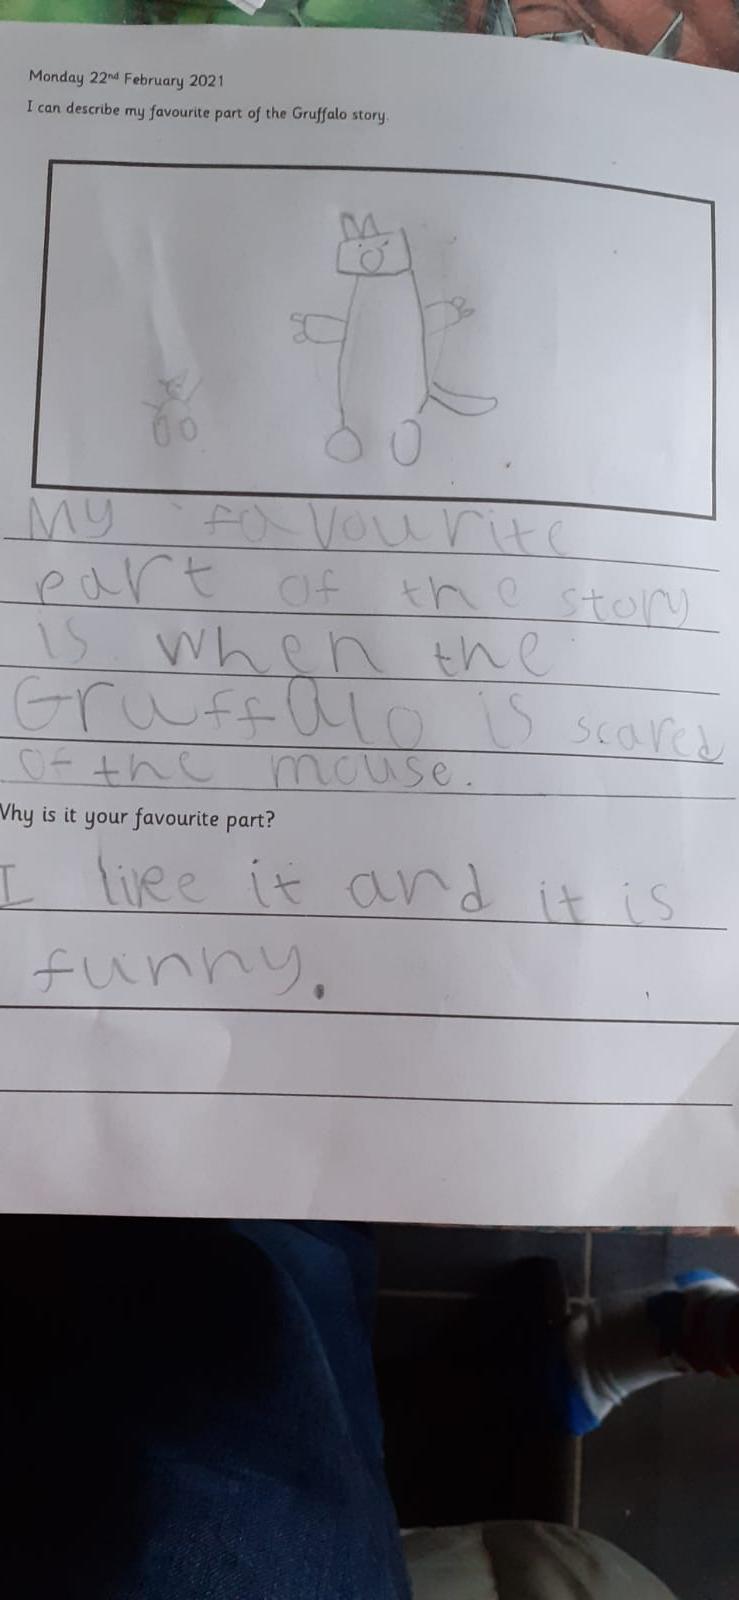 Monday 22nd February 2021
I can describe my favourite part of the Gruffalo story.
My favourite
part of the story
is when the
Gruffalo is scared
of the mouse.
Why is it your favourite part?
I like it and it is
funny.